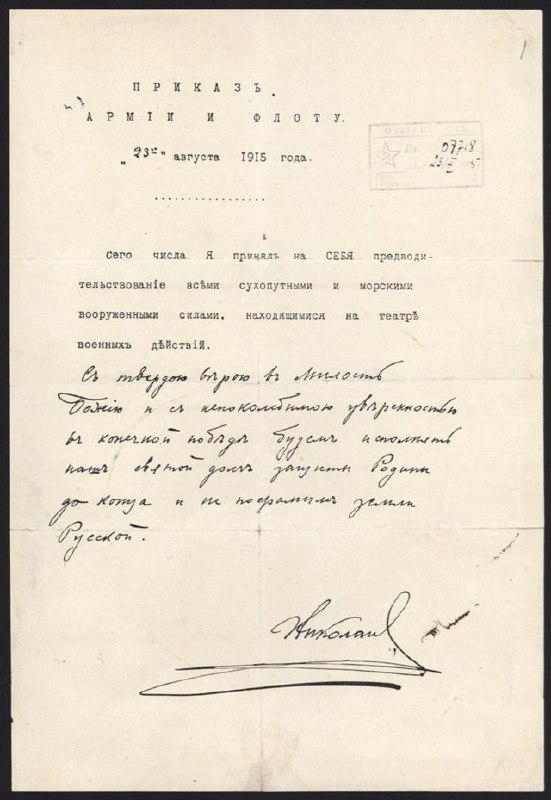 1
ПРИКАЗЪ.
АРМІИ И ФЛОТУ.
„23го" августа 1915 года.
Сего числа Я принялъ на СЕБЯ предводи-
тельствованіе всѣми сухопутными и морскими
вооруженными силами, находящимися на театрѣ
военныхъ дѣйствій.
Съ твердою вѣрою въ милость
Божію и съ непоколебимою увѣренностью
въ конечной побѣдѣ будемъ исполнять
нашъ святой долгъ защиты Родины
до конца и не посрамимъ земли
Русской.
Николай